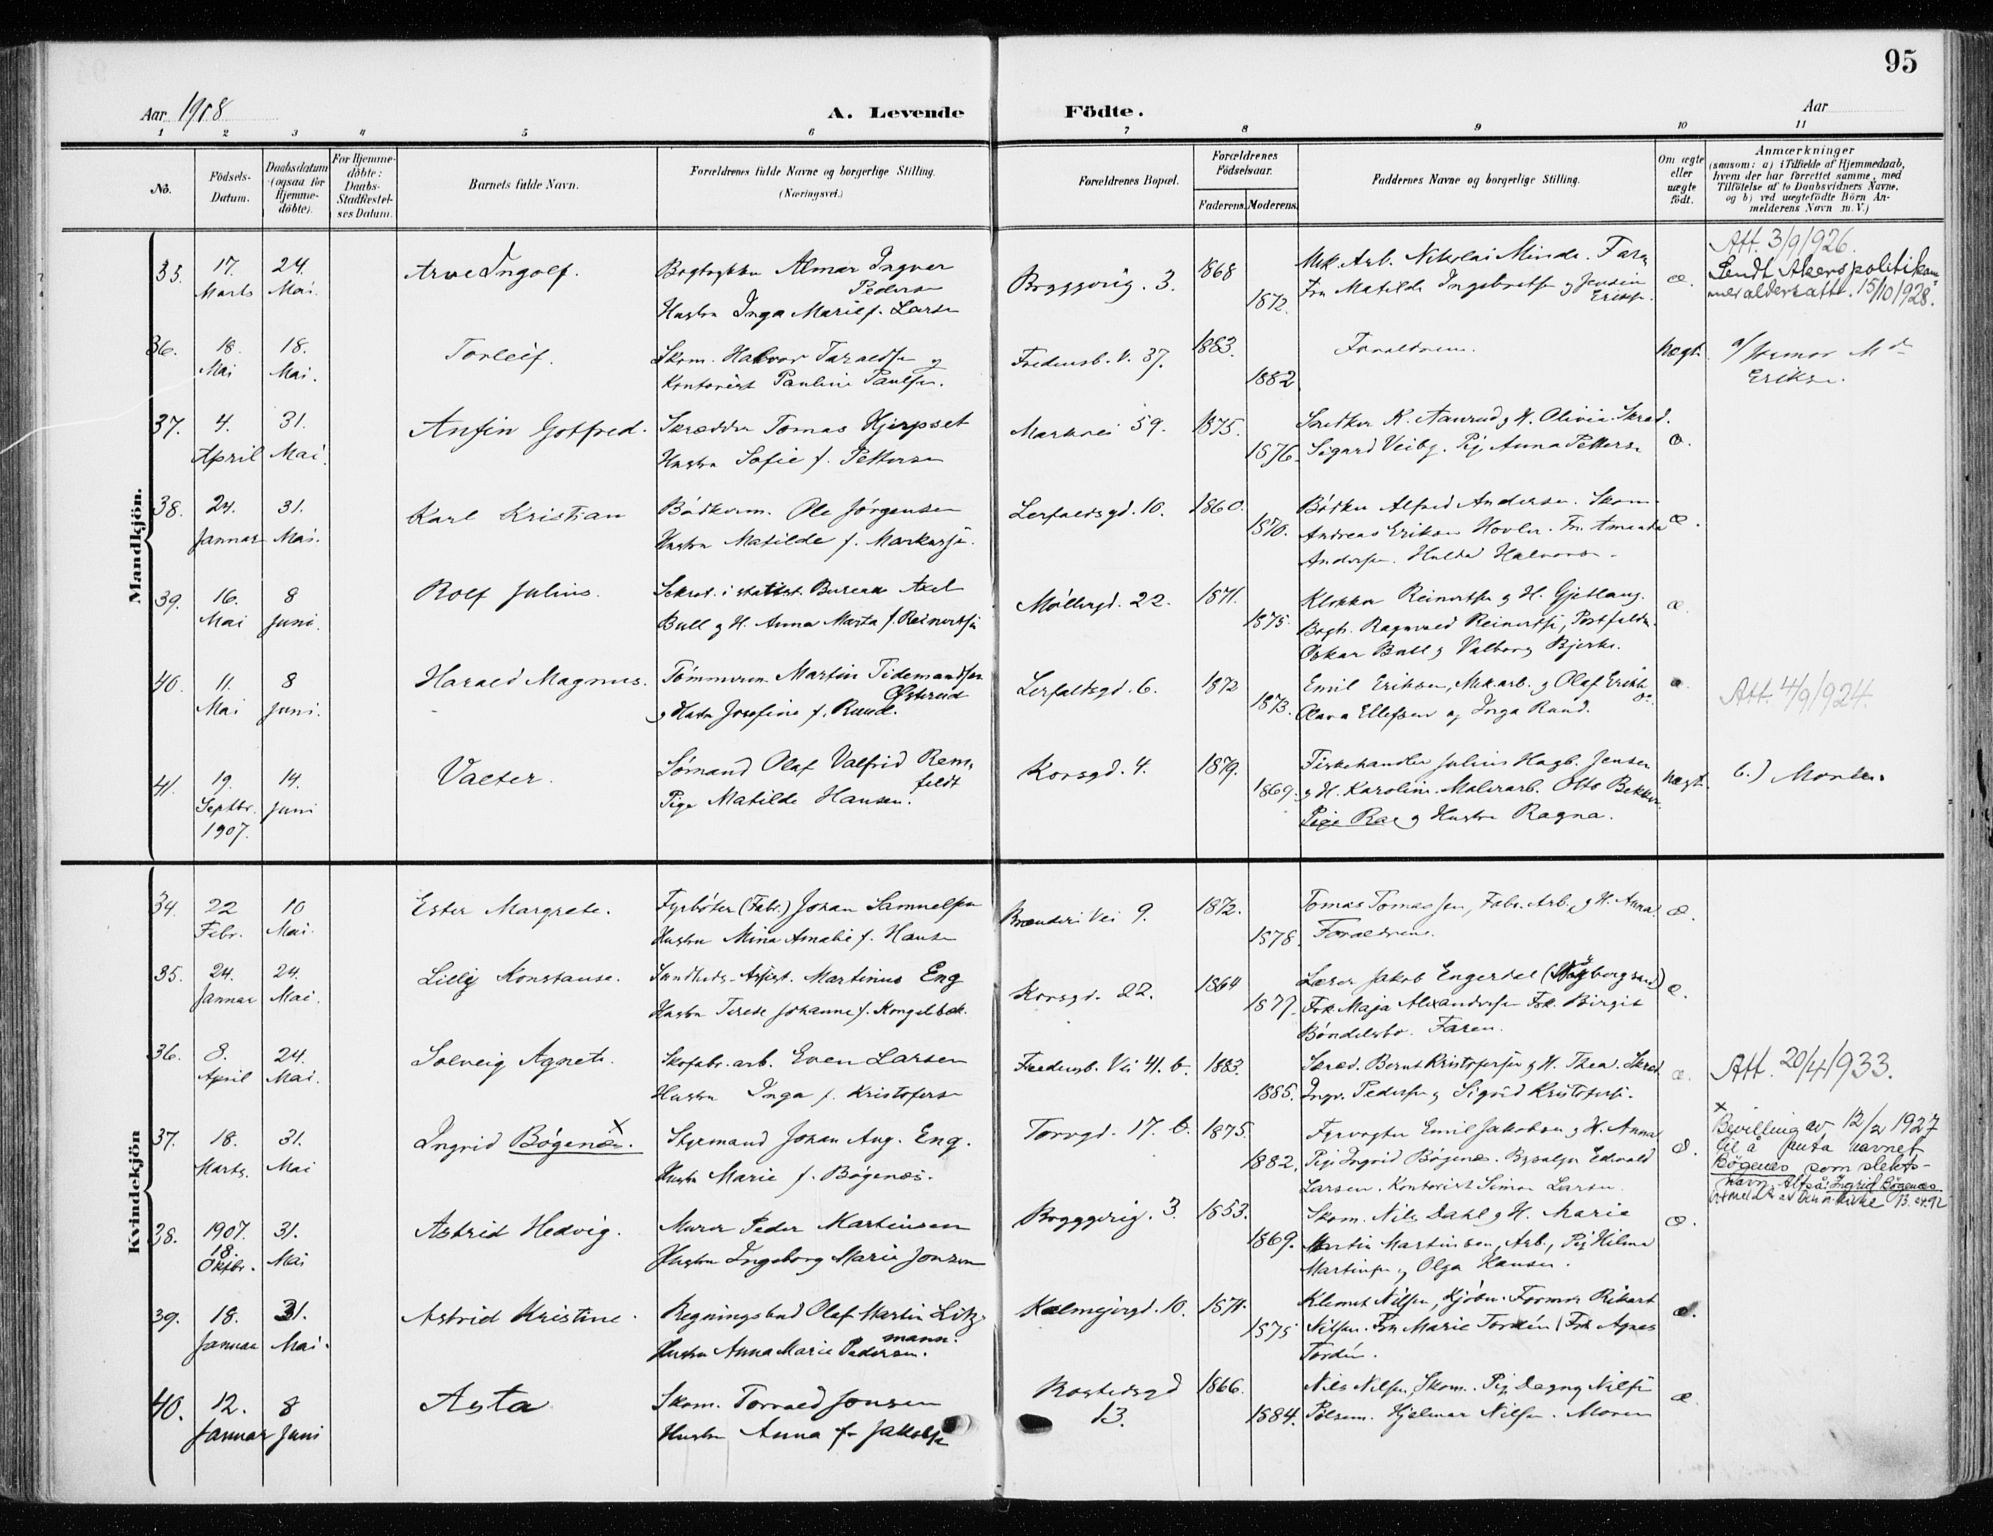 95
Aar 1908
A. Levende Födte.
Aar
1 2 3 4 5 6 7 8 9 10 11
No.
Födsels-
Datum.
Daabsdatum
(ogsaa for
Hjemme-
döbte).
For Hjemme-
döbte:
Daabs-
Stadfestel-
ses Datum.
Barnets fulde Navn.
Forældrenes fulde Navne og borgerlige Stilling.
(Næringsvei.)
Forældrenes Bopæl.
Forældrenes
Födselsaar.
Faderens. Moderens.
Faddernes Navne og borgerlige Stilling.
Om ægte
eller
uægte
födt.
Anmærkninger
(saasom: a) i Tilfælde af Hjemmedaab,
hvem der har forrettet samme, med
Tilföielse af to Daabsvidners Navne,
og b) ved uægtefödte Börn An-
melderens Navn m. V.)
Mandkjön.
35. 17. Marts 24. Mai. Arve Ingolf.
Almar Ingvar
Pedersen
Hustru Inga Marie f. Larsen
Bryggerig. 3. 1868 1872.
Mek. Arb. Nikolai Minde. Faren
Fru Matilde Ingebretsen og Jensine
Eriksen.
æ.
Att. 3/9/926.
Sendt Akers politikam
mer aldersatt. 15/10/1928.
36. 18. Mai 18. Mai. Torleif.
Skom. Halvor Taraldsen og
Kontorist Pauline Paulsen.
Fredensb. V. 37. 1883. 1882
Forældrene.
uægt.
Eriksen.
37. 4. April 31. Mai. Anfin Gotfred.
Skrædder Tomas Hjerpset
Hustru Sofie f. Pettersen
Markvei 59. 1875. 1876.
Snedker K. Aamrud og H. Olivia. Skræd.
Sigurd Veiby. Pige Anna Pettersen
æ.
38. 24. Januar 31. Mai. Karl Kristian
Bödkerm. Ole Jörgensen
Hustru Matilde f. Markussen.
Lerfaldsgd. 10. 1860. 1870.
Bödker Alfred Andersen. Skom.
Andreas Eriksen Hovler. Fru Amanda
Andersen. Hulda Halvorsen.
æ.
39. 16. Mai 8 Juni. Rolf Julius.
Sekret. i statist. Bureau Axel
Bull og H. Anna Marta f. Reinertsen
Möllergd. 22. 1871. 1875.
Klokker Reinertsen og H. Gjetlaug.
Bogh. Ragnvald Reinertsen, Postfuldm.
Oskar Bull og Valborg Bjerke.
æ.
40. 11. Mai 8 Juni. Harald Magnus.
Tömmerm. Martin Tidemandsen
Östrud
og Hustru Josefine f. Ruud.
Lerfaldsgd. 6. 1872 1873.
Emil Eriksen, Mek. arb. og Olaf Eriksen
Olava Ellefsen og Inga Ruud.
æ.
Att. 4/9/924.
41. 19. Septbr. 1907. 14. Juni Valter.
Sömand Olaf Valfrid Rem-
feldt
Pige Matilde Hansen.
Korsgd. 4. 1879. 1869.
Fiskehandler Julius Hagb. Jensen
og H. Karoline. Malerarb. Otto Bekken
Pige Rae og Hustru Ragna.
uægt.
b.) Moderen.
Kvindekjön
34. 22 Febr. 10 Mai. Ester Margrete.
Fyrböter (Fabr.) Johan Samuelsen
Hustru Mina Amalie f. Hansen
Vei 9. 1872. 1878.
Tomas Tomassen, Fabr. Arb. og H. Anna.
Forældrene.
æ.
35. 24. Januar 24. Mai. Lilly Konstanse.
Sundheds-Assist. Martinius Eng
Hustru Terese Johanne f. Kongelbæk.
Korsgd. 22. 1864 1877.
Lærer Jakob Engerdal
Frk. Maja Alexandersen Frk. Birgit
Böndelsbo. Faren.
æ.
36. 8. April 24. Mai. Solveig Agnete.
Skofabr. arb. Even Larsen
Hustru Inga f. Kristofersen
Fredensb. Vei 41. b. 1883. 1885.
Skræd. Bernt Kristofersen og H. Thea. Skræd.
Ingv. Pedersen og Sigrid Kristofersen.
æ.
Att. 20/4/933.
37. 18. Marts. 31. Mai Ingrid Bögenæs. x
Styrmand Johan Aug. Eng.
Hustru Marie f. Bögenæs.
Torvgd. 17. b. 1875. 1882.
Fyrvogter Emil Jakobsen og H. Anna
Pige Ingrid Bögenæs. Bysælger Edvald
Larsen. Kontorist Simon Larsen.
æ.
x
Bevilling av 12/2 1927
til å anta navnet
Bögenæs som slekts-
navn. Altså: Ingrid Bögenæs
38. 1907. 18. Oktbr. 31. Mai Astrid Hedvig.
Murer Peder Martinsen
Hustru Ingeborg Marie Jonsen
Bryggerig. 3. 1853. 1869.
Skom. Nils Dahl og H. Marie
Martin Martinsen, Arb., Pige Hilma
Martinsen og Olga Hansen.
æ.
39. 18. Januar 31. Mai. Astrid Kristine.
Regningsbud Olaf Martin Litz-
mann.
Hustru Anna Marie Pedersen.
Kalmejergd. 10. 1871. 1875
Klemet Nilsen, Kjöbm. Former Rikart
Nilsen. Fru Marie Tordén. Frk Agnes
Tordén.
æ.
40. 12. Januar 8 Juni Asta
Skom. Torvald Jonsen
Hustru Anna f. Jakobsen
Rostedsgd
13. 1866. 1884.
Nils Nilsen, Skom. Pige Dagny Nilsen
Pölsem. Hjelmar Nilsen. Moren
æ.